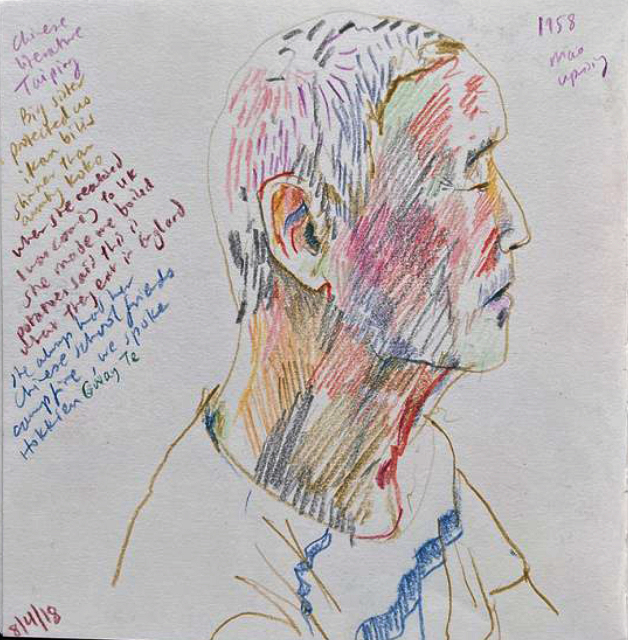 Chinese
literature
Taiping
Big sister
protected us
ikan bilis
shinier than
aunty koko
when she realised
I was coming to UK
she made me boiled
potatoes said this is
what they eat in England
she always had her
Chinese school friends
campfire, we spoke
Hokkien Gway Te
1958
Mao
8/4/18